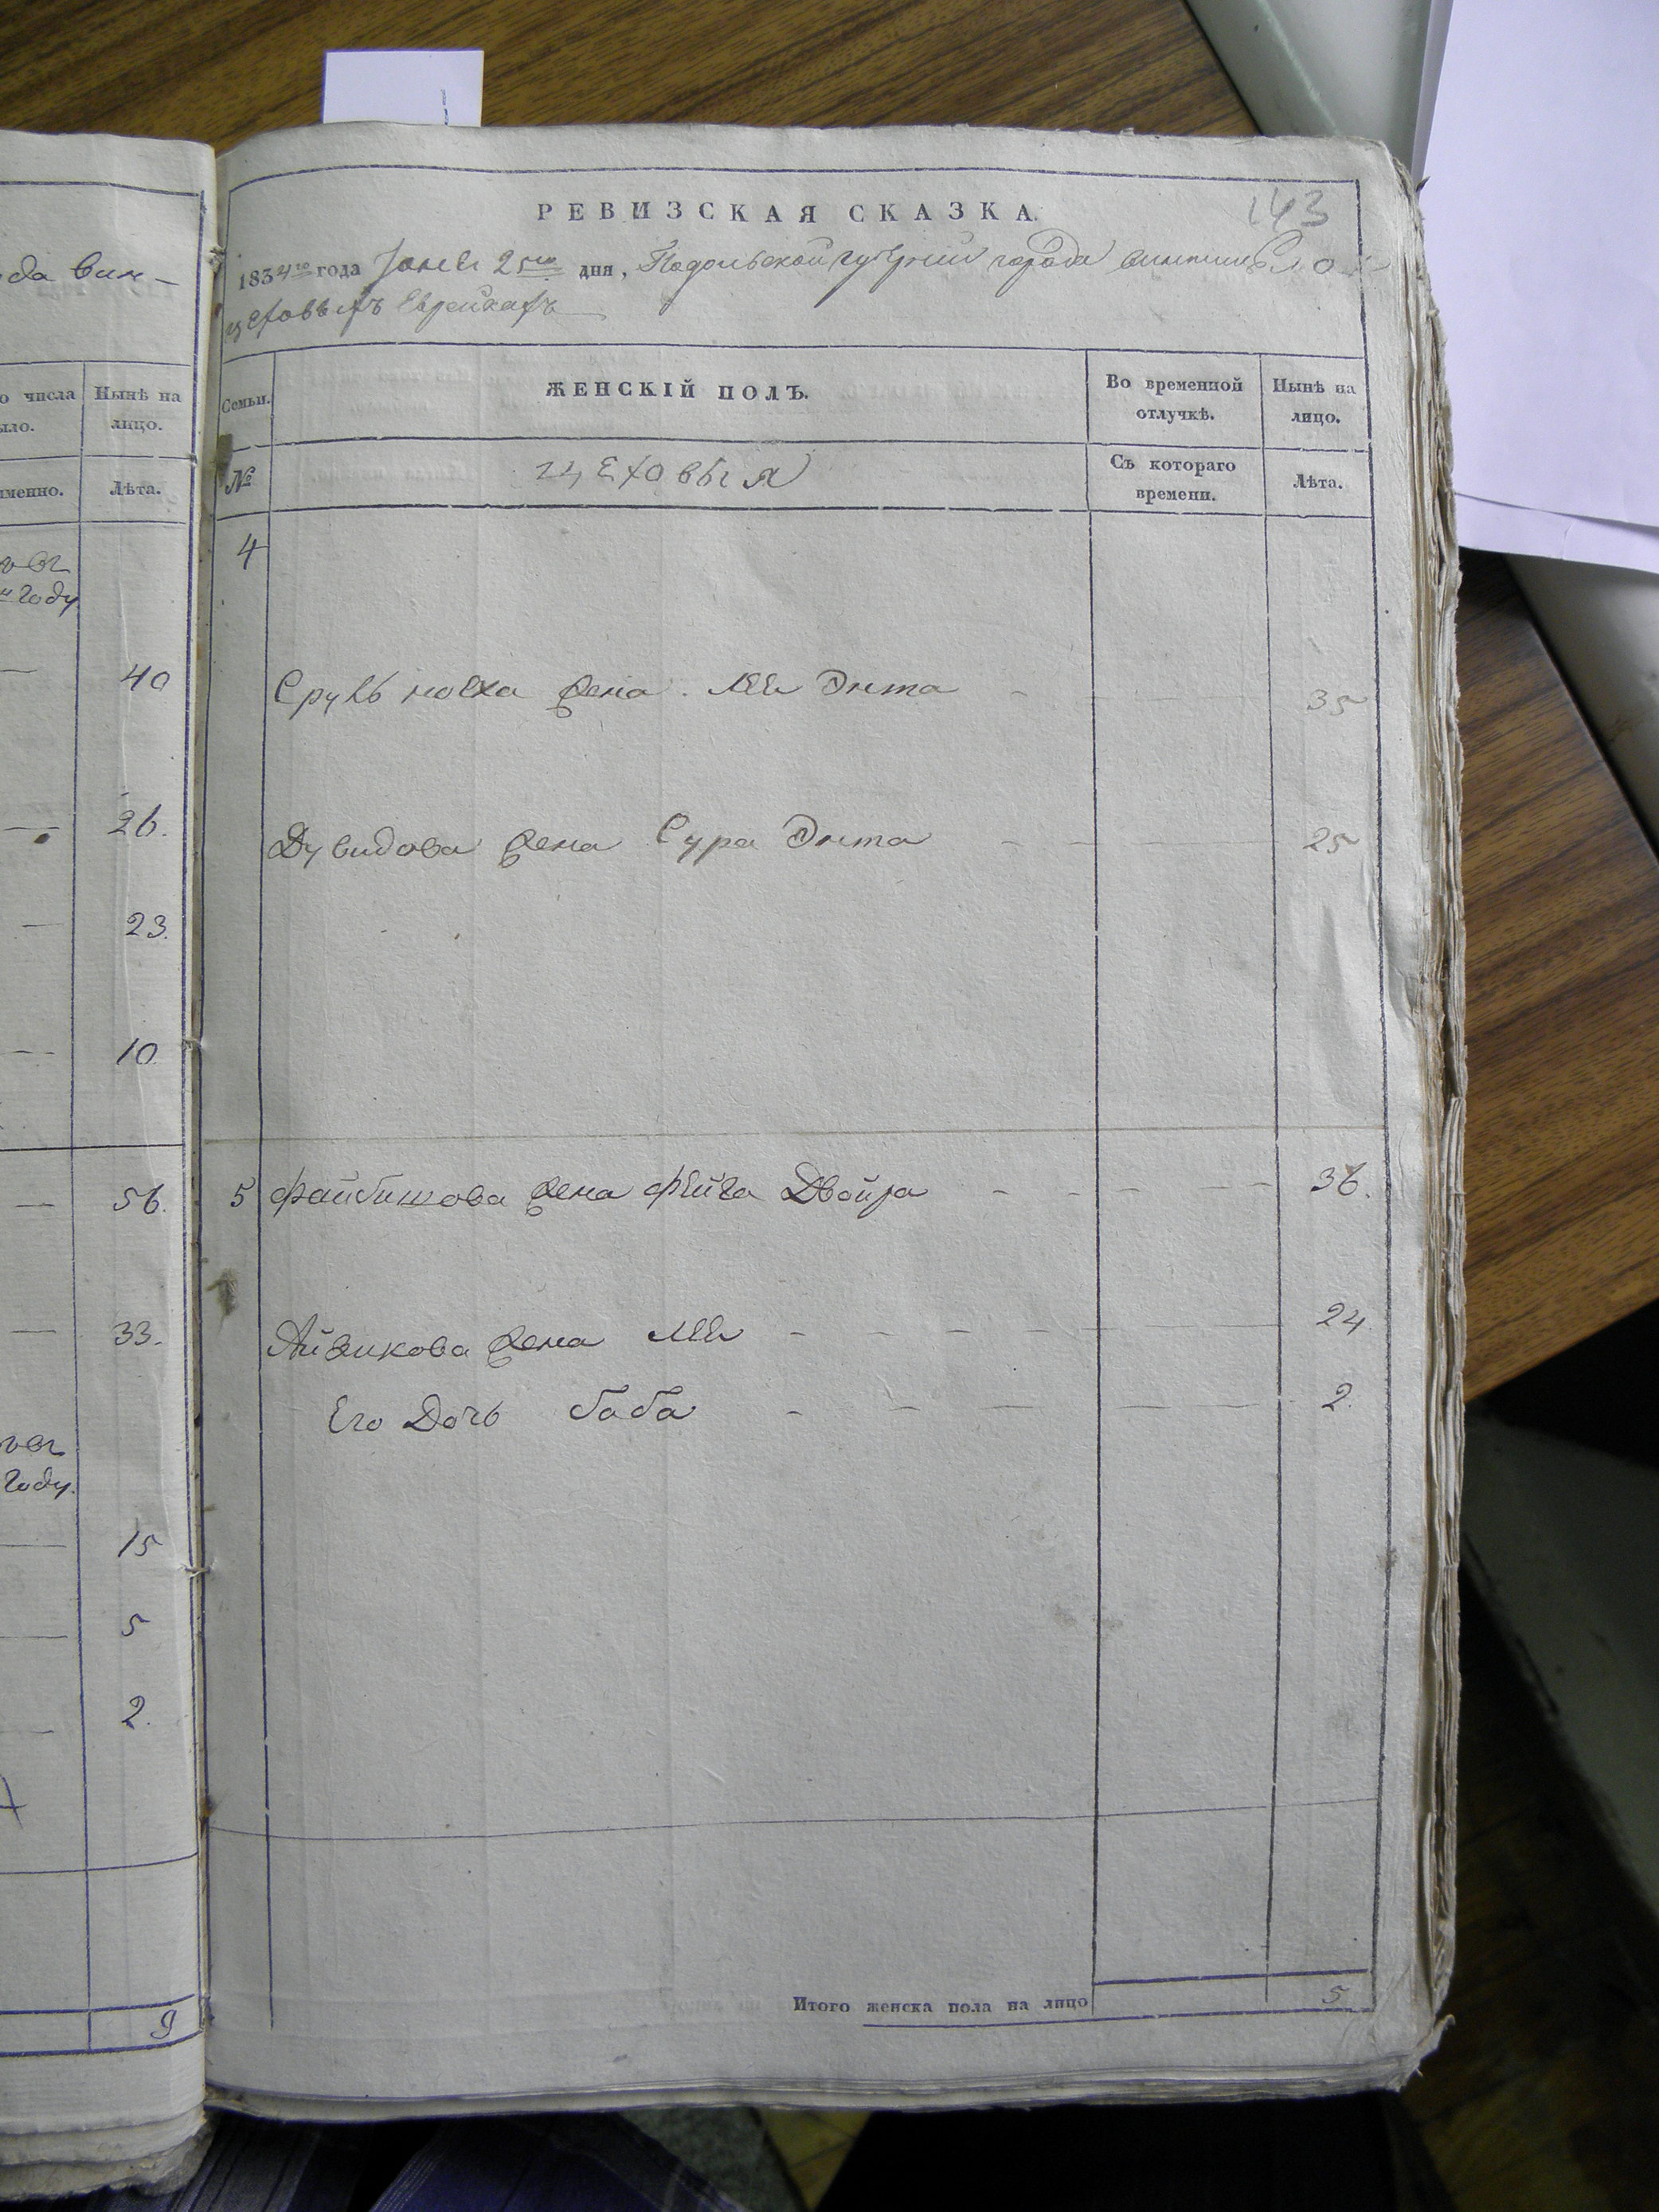 да Вин–
о числа Нынѣ на
ыло. лицо.
именно. Лѣта.
году
— 40
— 26.
— 23.
— 10.
— 56.
— 33.
году.
15
5
2.
9
143
РЕВИЗСКАЯ СКАЗКА.
1834го года 25го дня, Подольской губернии города
цеховымъ Еврейкамъ
Семьи. ЖЕНСКІЙ ПОЛЪ. Во временной отлучкѣ. Нынѣ на лицо.
№ цеховыя Съ котораго времени. Лѣта.
4
Сруль жена Энта 35
Дувидова жена Сура Энта 25
5 Файбишова жена Фейга Двойра 36.
Айзикова жена 24
Его Дочь баба 2.
Итого женска пола на лицо 5